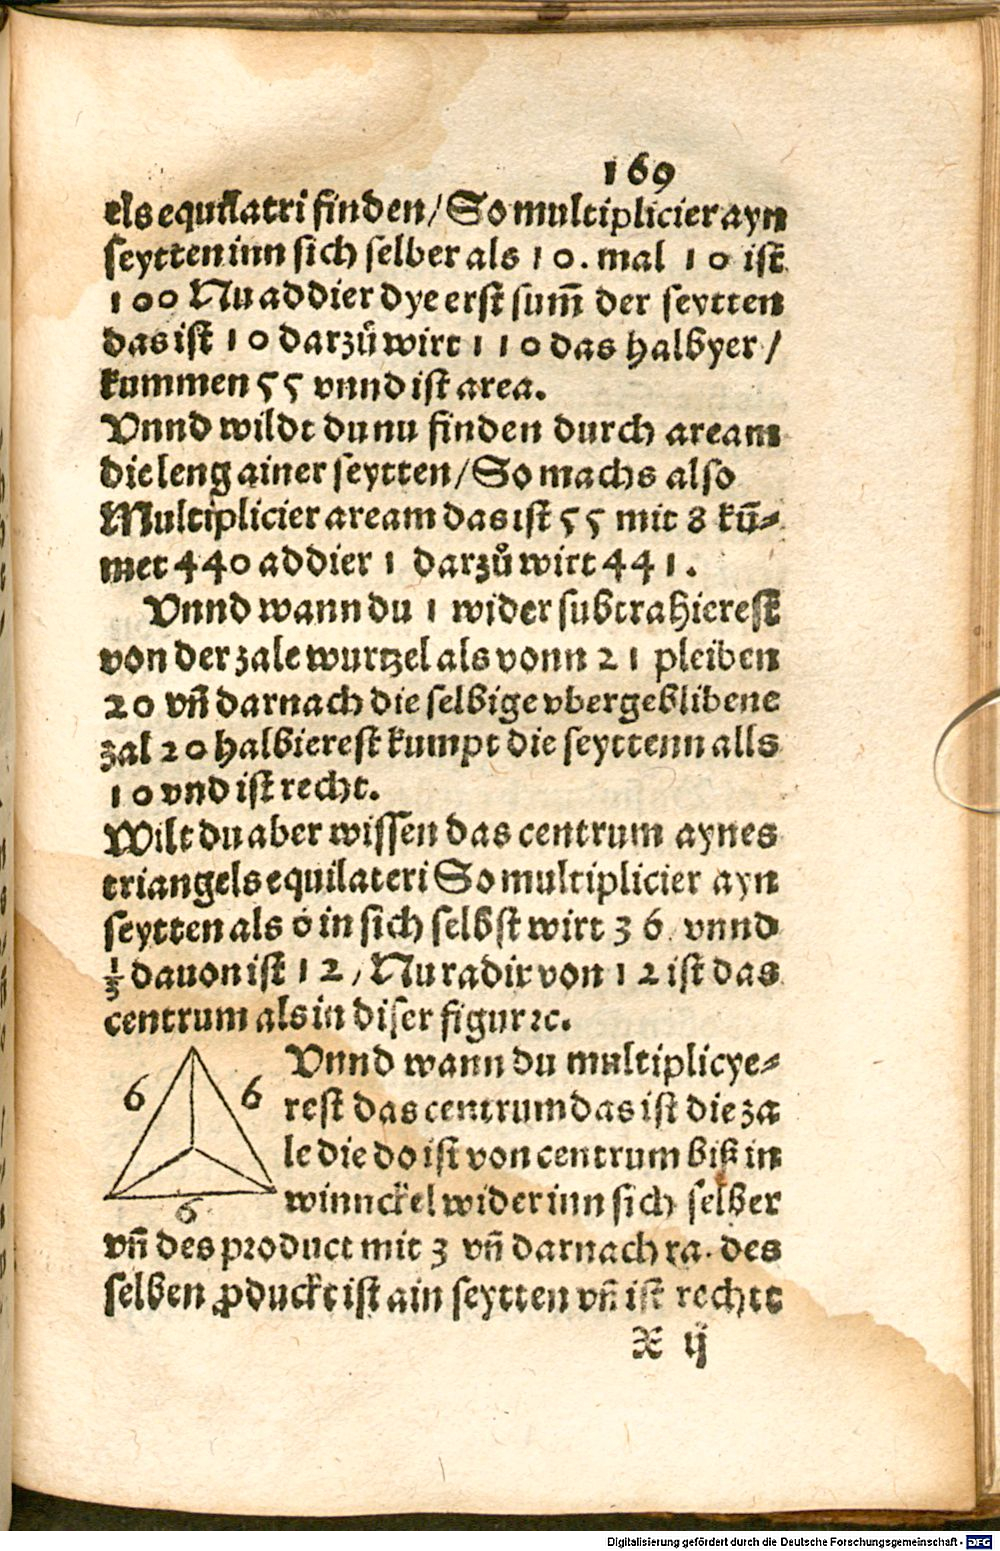 169
els equilatri finden/ So multiplicier ayn
seytten inn sich selber als 10. mal 10 ist
100 Nu addier dye erst sum̅ der seytten
das ist 10 darzů wirt 110 das halbyer /
kummen 55 vnnd ist area.
Vnnd wildt du nu finden durch aream
die leng ainer seytten/ So machs also
Multiplicier aream das ist 55 mit 8 kū⸗
met 440 addier 1 darzů wirt 441.
Vnnd wann du 1 wider subtrahierest
von der zale wurtzel als vonn 21 pleiben
20 vn̄ darnach die selbige vbergeblibene
zal 20 halbierest kumpt die seyttenn alls
10 vnd ist recht.
Wilt du aber wissen das centrum aynes
triangels equilateri So multiplicier ayn
seytten als 6 in sich selbst wirt 36 vnnd
⅓ dauon ist 12 / Nu radix von 12 ist das
centrum als in diser figur ꝛc.
Vnnd wann du multiplicye⸗
rest das centrum das ist die za
le die do ist von centrum biß in
winnckel wider inn sich selber
vn̄ des product mit 3 vn̄ darnach ra. des
selben ꝓduckt ist ain seytten vn̄ ist rechtt
6
6
6
X ij
Digitalisierung gefördert durch die Deutsche Forschungsgemeinschaft - DFG